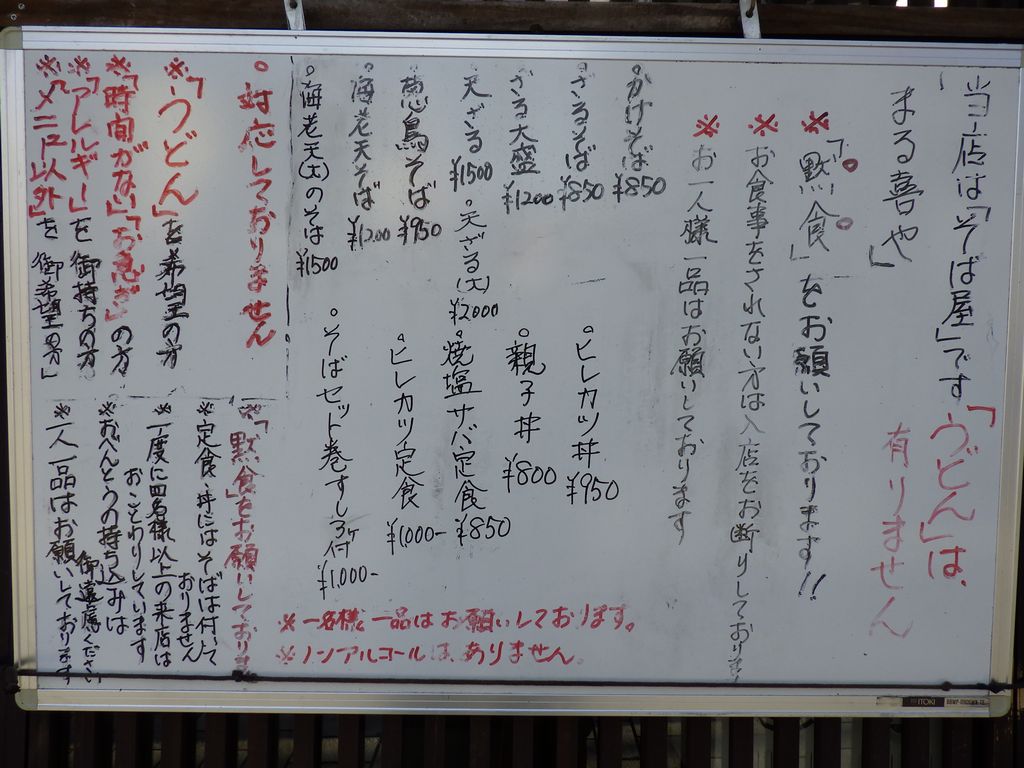 当店は「そば屋」です「うどん」は、
有りません
「まる喜や」
※「黙食」をお願いしております!!
※お食事をされない方は入店をお断りしております
※お一人様一品はお願いしております
○かけそば ¥850
○ざるそば ¥850
○ざる大盛 ¥1200
○天ざる ¥1500
○天ざる(大) ¥2000
○鳥そば ¥950
○海老天そば ¥1200
○海老天(大)のそば ¥1500
○ヒレカツ丼 ¥950
○親子丼 ¥800
○焼塩サバ定食 ¥850
○ヒレカツ定食 ¥1000-
○そばセット巻すし3ケ付 ¥1,000-
※一名様一品はお願いしております。
※ノンアルコールは、ありません。
○対応しておりません
※「うどん」を希望の方
※「時間がない」「お急ぎ」の方
※「アレルギー」を御持ちの方
※「メニュー以外」を御希望の方」
※「黙食」をお願いしております
※定食 丼にはそばは付いて
おりません
※一度に四名様以上の来店は
おことわりしています
※おべんとうの持ち込みは
御遠慮ください
※一人一品はお願いしております
ITOKI